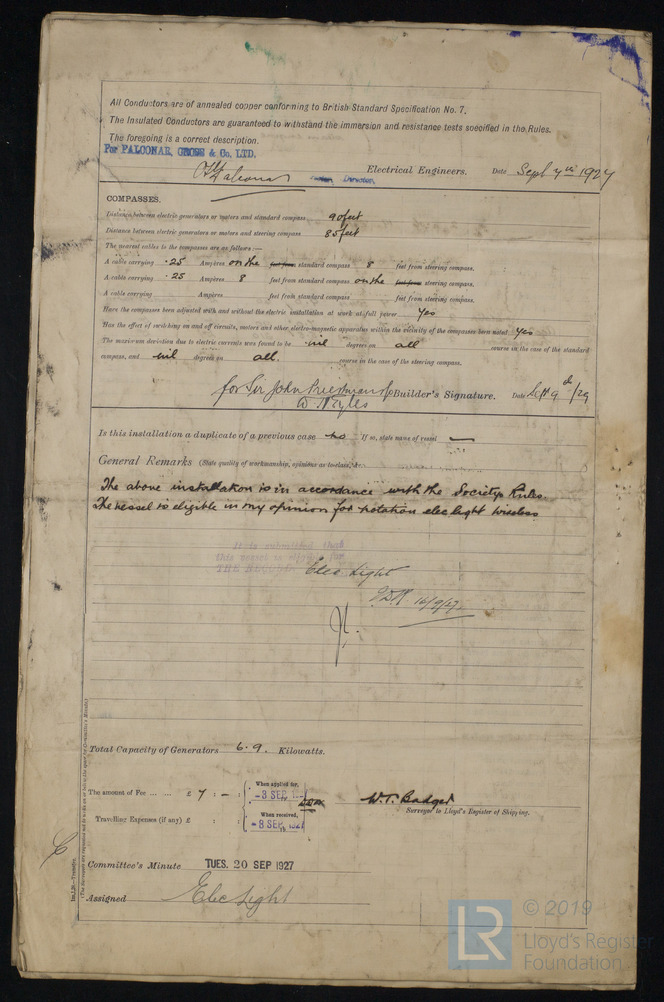 All Conductors are of annealed copper conforming to British Standard Specification No. 7.
The Insulated Conductors are guaranteed to withstand the immersion and resistance tests specified in the Rules.
The foregoing is a correct description.
For FALCONAR, CROSS & Co. LTD.
Falconar Director Electrical Engineers. Date Sept 7th 1927
COMPASSES.
Distance between electric generators or motors and standard compass 90 feet
Distance between electric generators or motors and steering compass 85 feet
The nearest cables to the compasses are as follows:—
A cable carrying .25 Ampères on the feet from standard compass 8 feet from steering compass.
A cable carrying .25 Ampères 8 feet from standard compass on the feet from steering compass.
A cable carrying Ampères feet from standard compass feet from steering compass.
Have the compasses been adjusted with and without the electric installation at work at full power yes
Has the effect of switching on and off circuits, motors and other electro-magnetic apparatus within the vicinity of the compasses been noted yes
The maximum deviation due to electric currents was found to be nil degrees on all course in the case of the standard
compass, and nil degrees on all. course in the case of the steering compass.
for Sir John Priestman & Co Builder's Signature. Date Sept 9th/29
Is this installation a duplicate of a previous case no If so, state name of vessel —
General Remarks (State quality of workmanship, opinions as to class, &c.
The above installation is in accordance with the Society's Rules.
The vessel is eligible in my opinion for notation elec light wireless
It is submitted that
this vessel is eligible for
THE RECORD Elec Light
16/9/27
Total Capacity of Generators 6.9. Kilowatts.
The amount of Fee ... ... £ 7 : – :
When applied for,
-3 SEP 192
W.T. Badger
Surveyor to Lloyd's Register of Shipping.
Travelling Expenses (if any) £ : :
When received,
-8 SEP 1927
Committee's Minute TUES. 20 SEP 1927
Assigned Elec Light
LR © 2019
Lloyd's Register
Foundation